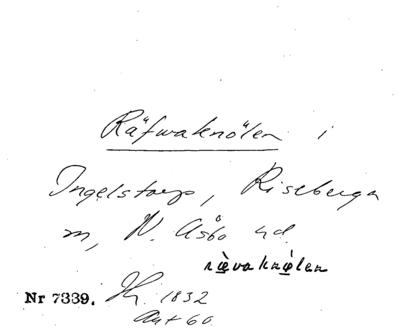 Räfwaknölen i
Ingelstorp, Riseberga
sn, N. Åsbo hd.
rævaknǿlen
Nr 7339. Kr. 1832
Akt 60